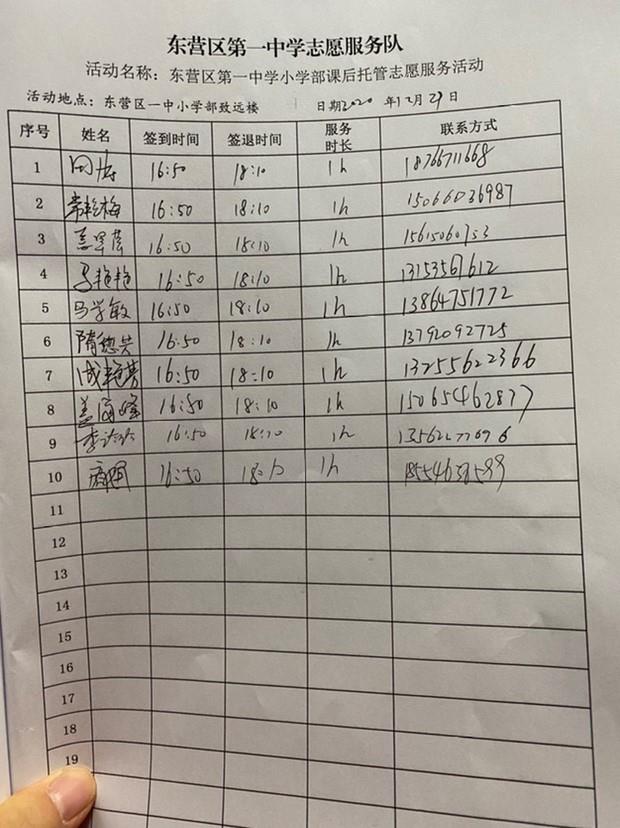 东营区第一中学志愿服务队
活动名称：东营区第一中学小学部课后托管志愿服务活动
活动地点：东营区一中小学部致远楼 日期2020年12月29日
序号 姓名 签到时间 签退时间 服务时长 联系方式
1 16:50 18:10 1h 18766711668
2 常艳梅 16:50 18:10 1h 15066036987
3 16:50 18:10 1h
4 马艳艳 16:50 18:10 1h 13153567612
5 马学敏 16:50 18:10 1h 13864751772
6 16:50 18:10 1h 13792092725
7 16:50 18:10 1h 13255622366
8 盖海峰 16:50 18:10 1h 15065462877
9 16:50 18:10 1h
10 16:50 18:10 1h
11
12
13
14
15
16
17
18
19